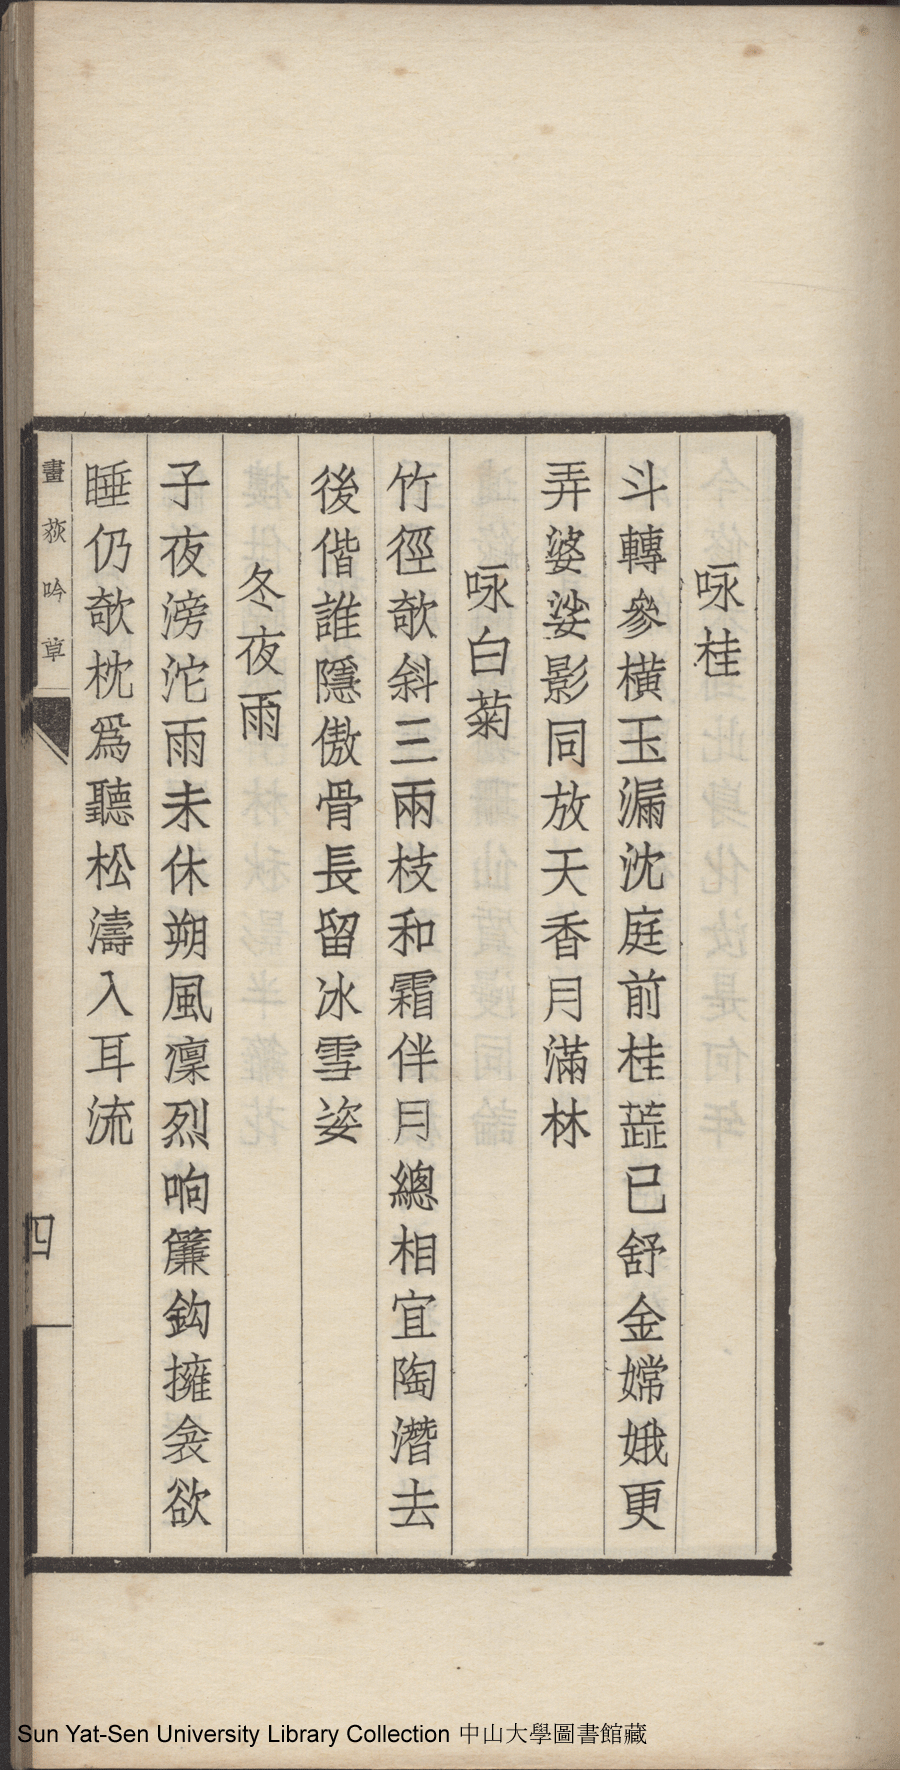 咏桂
斗轉參橫玉漏沈庭前桂蕋已舒金嫦娥更
弄婆娑影同放天香月滿林
咏白菊
竹徑欹斜三兩枝和霜伴月總相宜陶潛去
後偕誰隱傲骨長留冰雪姿
冬夜雨
子夜滂沱雨未休朔風凜烈响簾鈎擁衾欲
睡仍欹枕爲聽松濤入耳流
畫荻吟草
四
Sun Yat-Sen University Library Collection 中山大學圖書館藏